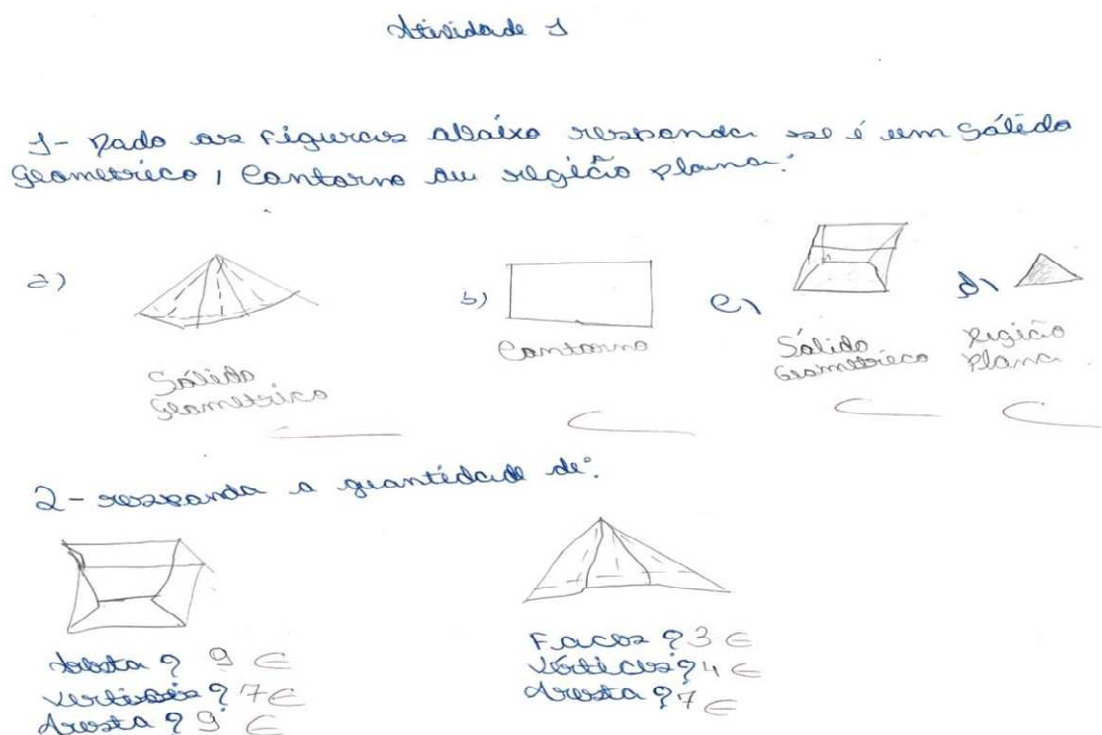 Atividade 1
1- Dado as Figuras abaixo responda se é um Sólido
geometrico, Contorno ou região plana:
a)
b)
c)
d)
Sólido
geometrico
Contorno
Sólido
Geometrico
Região
Plana
2- responda a quantidade de:
Aresta? 9
Vertices? 7
Aresta? 9
Faces? 3
Vértices? 4
Aresta? 7